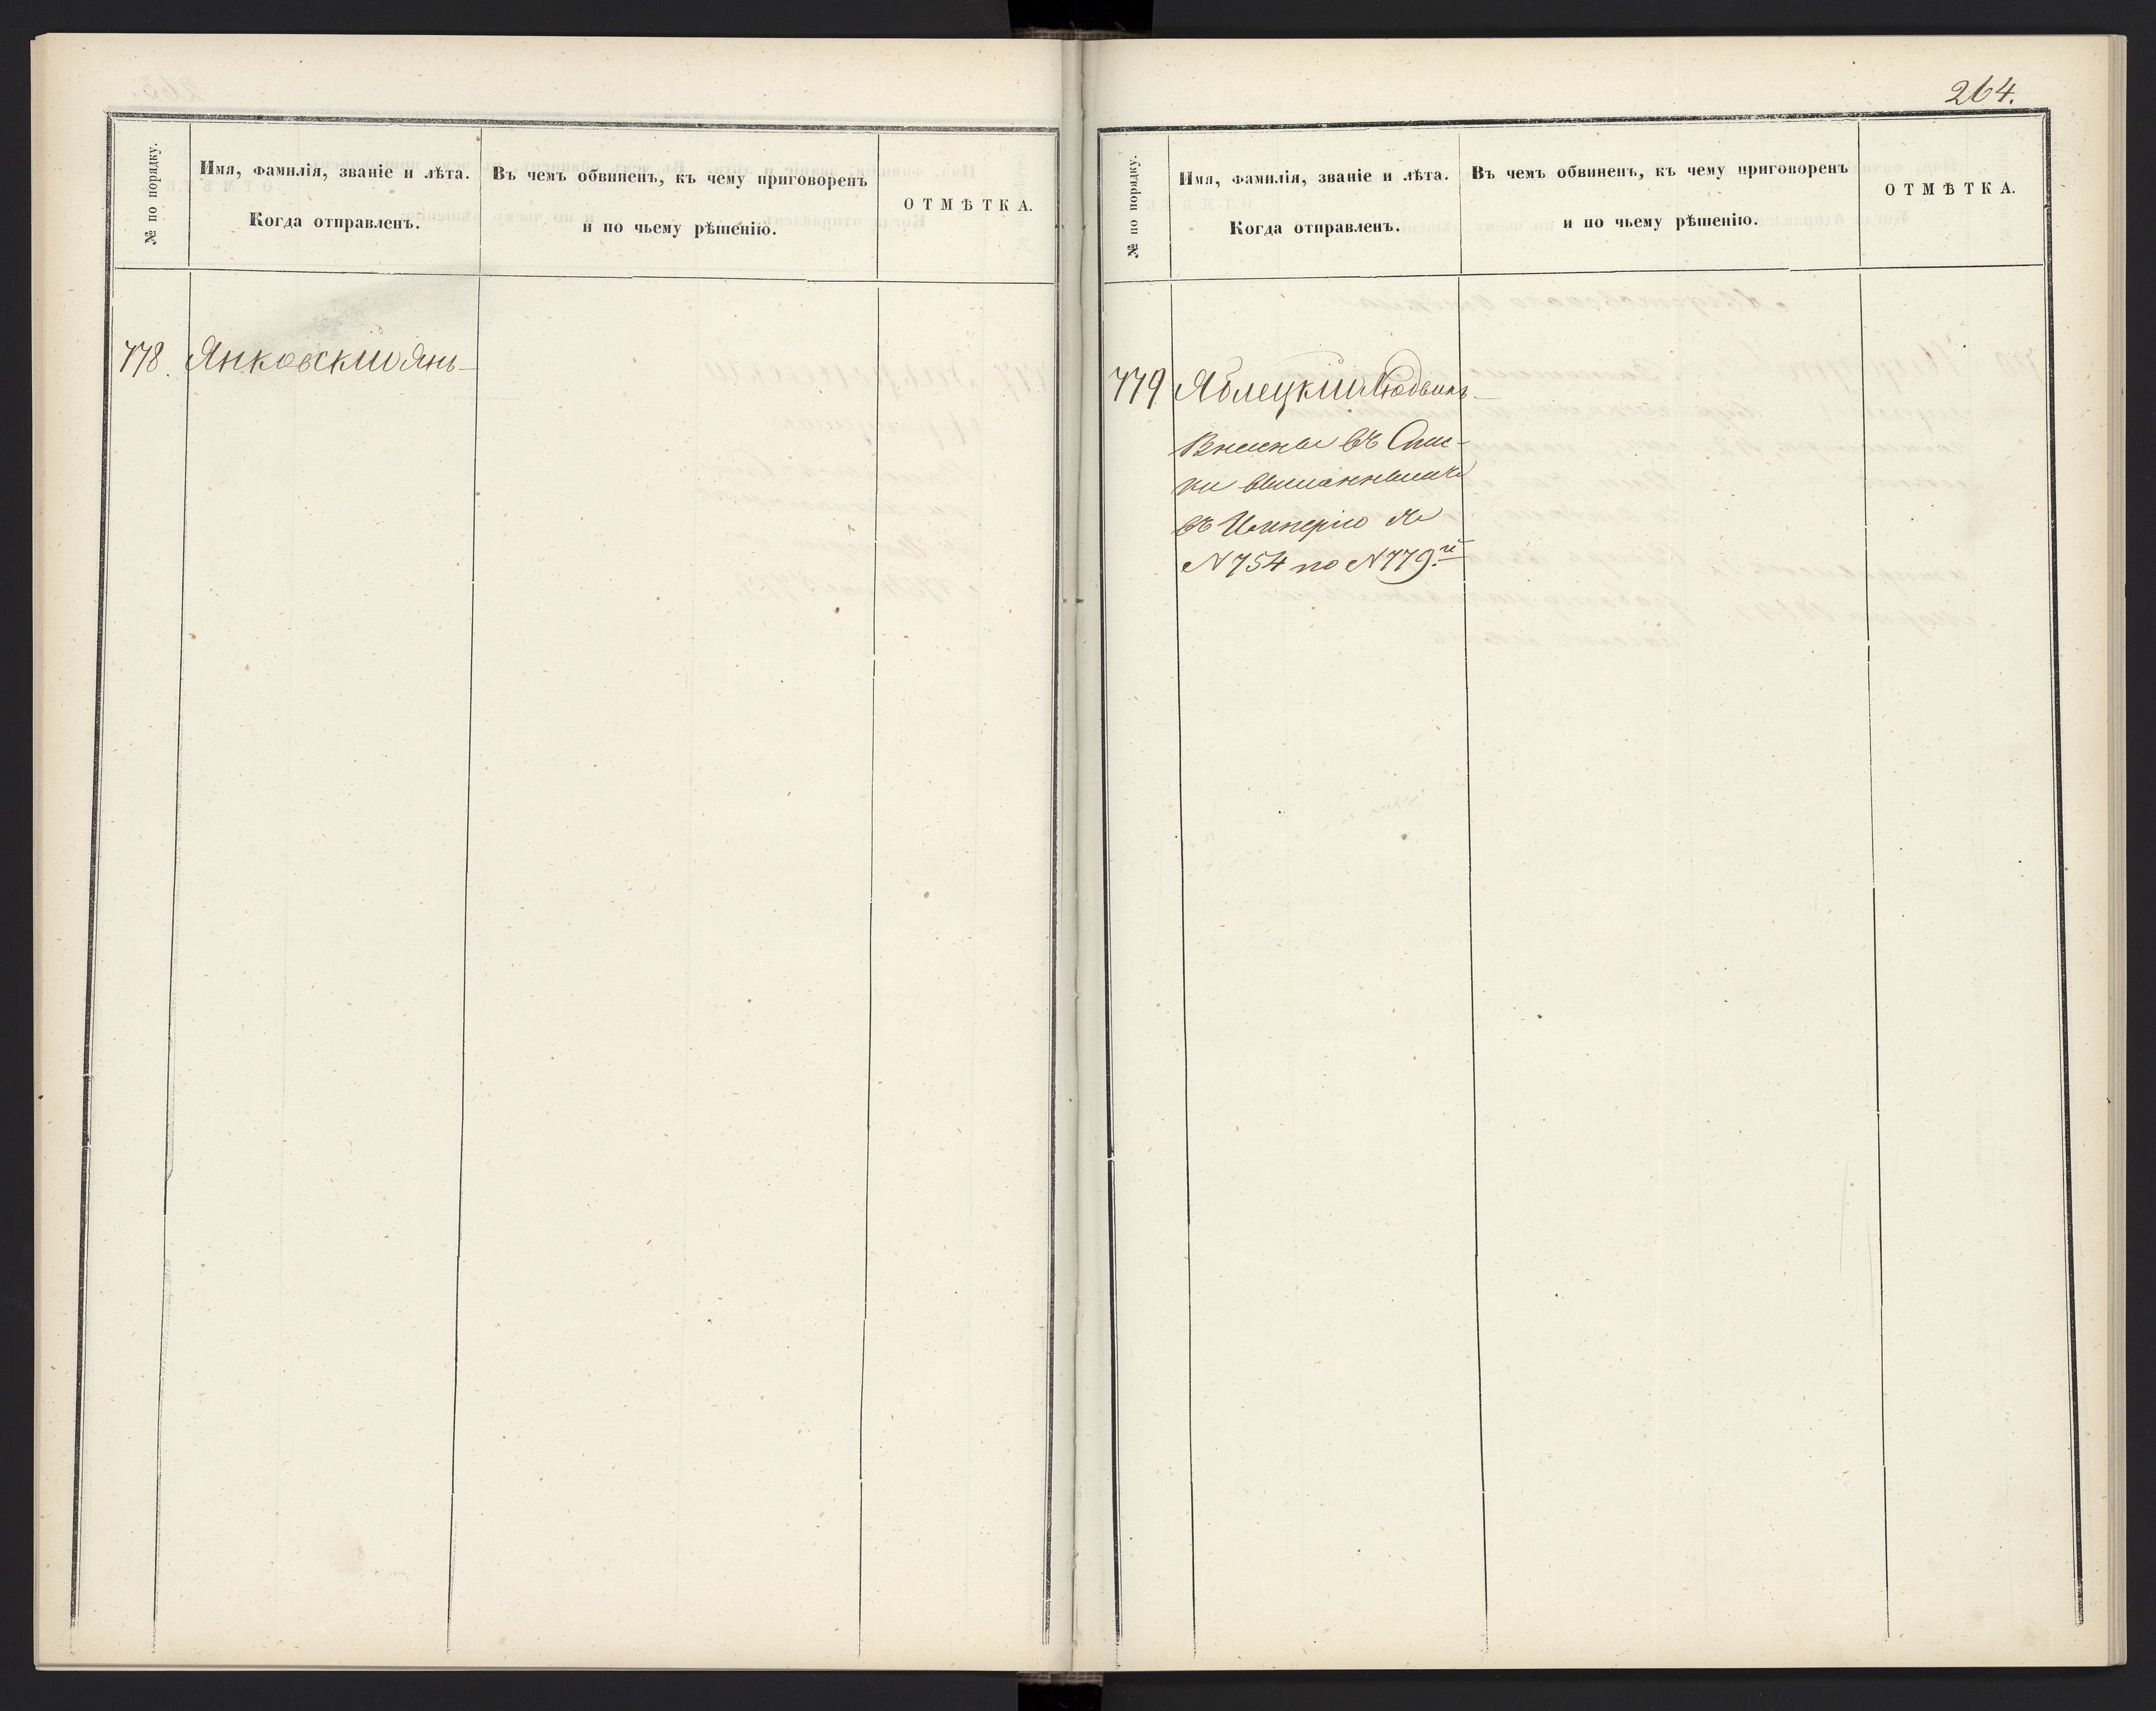 № по порядку.
Имя, фамилія, званіе и лѣта.
Когда отправленъ.
Въ чемъ обвиненъ, къ чему приговоренъ
и по чьему рѣшенію.
ОТМѢТКА.
778. Янковскій Янъ
264.
№ по порядку.
Имя, фамилія, званіе и лѣта.
Когда отправленъ.
Въ чемъ обвиненъ, къ чему приговоренъ
и по чьему рѣшенію.
ОТМѢТКА.
779 Яблецкій Людвикъ
въ Спис-
ки
въ Имперію
N 754 по N 779.й